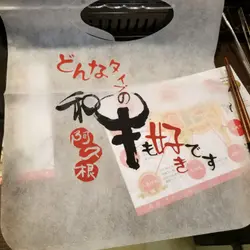 どんなタイプの
和牛も好きです
阿久根